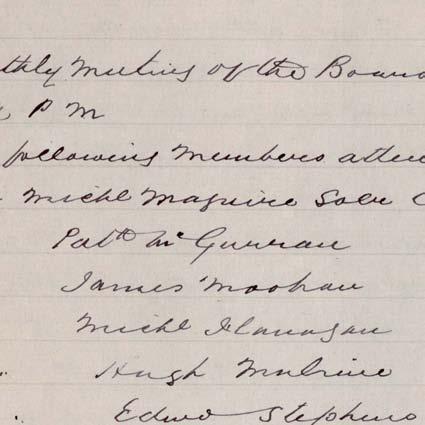 thly Meeting of the Board
P M
following Members atten
Michl Maguire Solr
Patk McGurran
James Moohan
Michl Flanagan
Hugh
Edwd Stephens